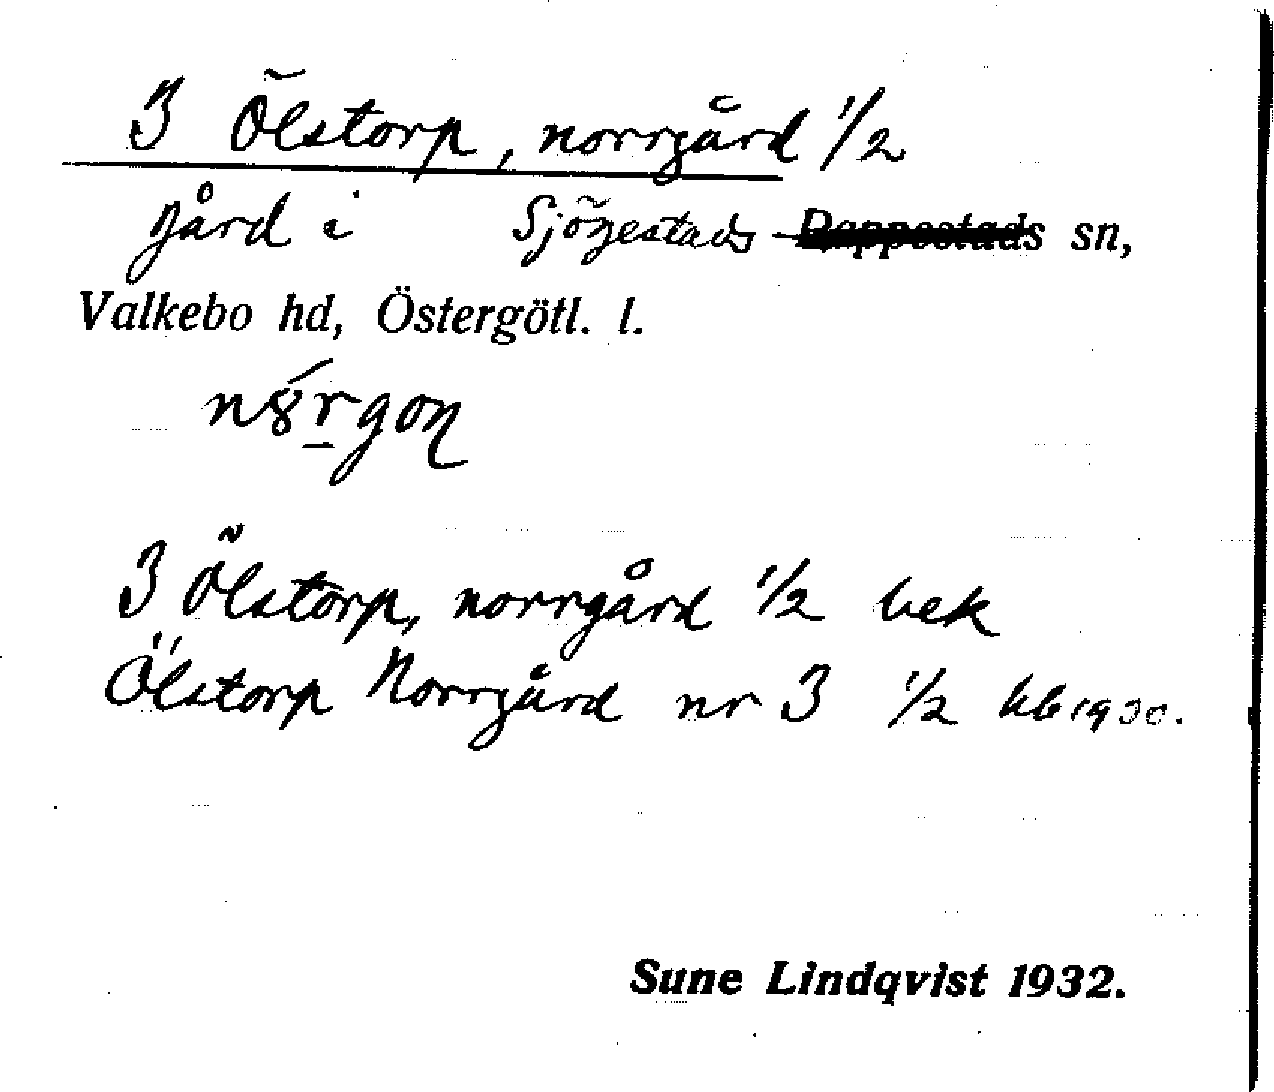 3 Ölstorp, norrgård 1/2
gård i Sjögestads Rappestads sn,
Valkebo hd, Östergötl. l.
3 Ölstorp, norrgård 1/2 bek
Ölstorp Norrgård nr 3 1/2 kb 1930.
Sune Lindqvist 1932.